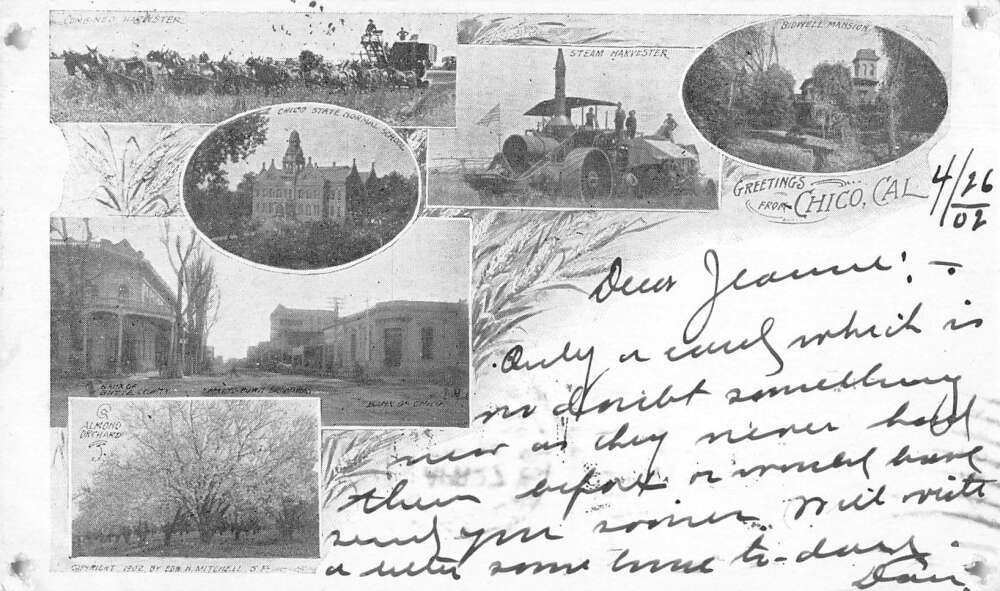 COMBINED HARVESTER
STEAM HARVESTER
BIDWELL MANSION
CHICO STATE NORMAL SCHOOL
GREETINGS
FROM CHICO, CAL
4/26
02
Dear Jeanne: -
Only a card which is
no doubt something
new as they never had
them before or would have
send you sooner. Will write
a letter some time to-day.
Dan
BANK OF
BUTTE COUNTY
BANK OF CHICO
ALMOND
ORCHARD
COPYRIGHT 1902, BY EDW. H. MITCHELL S.F.